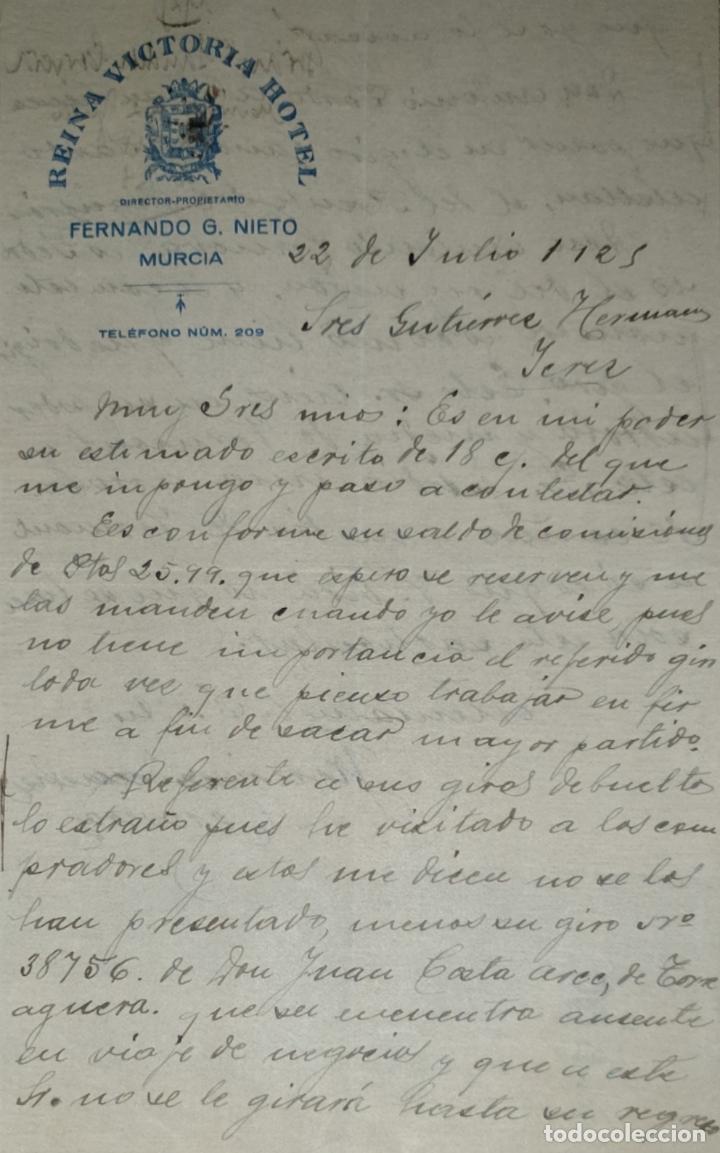 REINA VICTORIA HOTEL
DIRECTOR-PROPIETARIO
FERNANDO G. NIETO
MURCIA
TELÉFONO NÚM. 209
22 de Julio 1925
Sres Gutiérrez Hermanos
Jerez
Muy Sres mios: Es en mi poder
su estimado escrito de 18 c/. del que
me inpongo y paso a contestar.
Ees conforme su saldo de comisiones
de Ptas 25.99. que espero se reserven y me
las manden cuando yo le avise pues
no tiene importancia el referido giro
toda vez que pienso trabajar en fir
me a fin de sacar mayor partido.
Referente a sus giros debuelto
lo estraño pues he visitado a los com
pradores y estos me dicen no se los
han presentado, menos su giro Nro
38756. de Don Juan Costa Arce, de Torre
aguera. que se encuentra ausente
en viaje de negocios y que a este
Sr. no se le girará hasta su regreso
todocoleccion.net